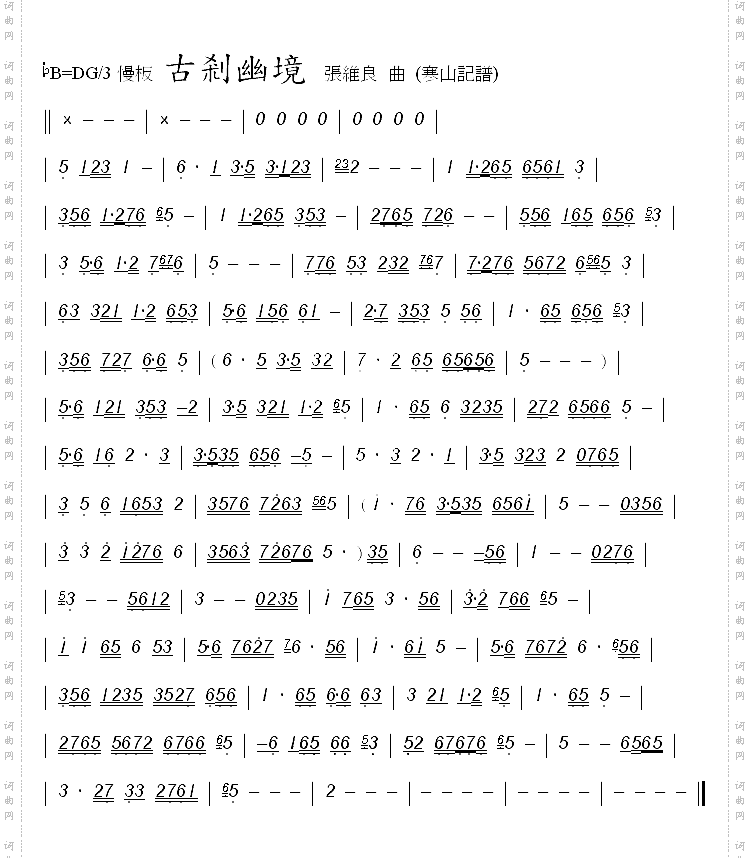 ♭B=DG/3 慢板 古剎幽境 張維良 曲 (寒山記譜)
‖ × – – – | × – – – | 0 0 0 0 | 0 0 0 0 |
| 5 123 1 – | 6 · 1 3·5 3·123 | 232 – – – | 1 1·265 6561 3 |
| 356 1·276 65 – | 1 1·265 353 – | 2765 726 – – | 556 165 656 53 |
| 3 5·6 1·2 7676 | 5 – – – | 776 53 232 767 | 7·276 5672 6565 3 |
| 63 321 1·2 653 | 5·6 156 61 – | 2·7 353 5 56 | 1 · 65 656 53 |
| 356 727 6·6 5 | ( 6 · 5 3·5 32 | 7 · 2 65 65656 | 5 – – – ) |
| 5·6 121 353 –2 | 3·5 321 1·2 65 | 1 · 65 6 3235 | 272 6566 5 – |
| 5·6 16 2 · 3 | 3·535 656 –5 – | 5 · 3 2 · 1 | 3·5 323 2 0765 |
| 3 5 6 1653 2 | 3576 7263 565 | ( 1 · 76 3·535 6561 | 5 – – 0356 |
| 3 3 2 1276 6 | 3563 72676 5 · ) 35 | 6 – – –56 | 1 – – 0276 |
| 53 – – 5612 | 3 – – 0235 | 1 765 3 · 56 | 3·2 766 65 – |
| 1 1 65 6 53 | 5·6 7627 76 · 56 | 1 · 61 5 – | 5·6 7672 6 · 656 |
| 356 1235 3527 656 | 1 · 65 6·6 63 | 3 21 1·2 65 | 1 · 65 5 – |
| 2765 5672 6766 65 | –6 165 66 53 | 52 67676 65 – | 5 – – 6565 |
| 3 · 27 33 2761 | 65 – – – | 2 – – – | – – – – | – – – – | – – – – ‖